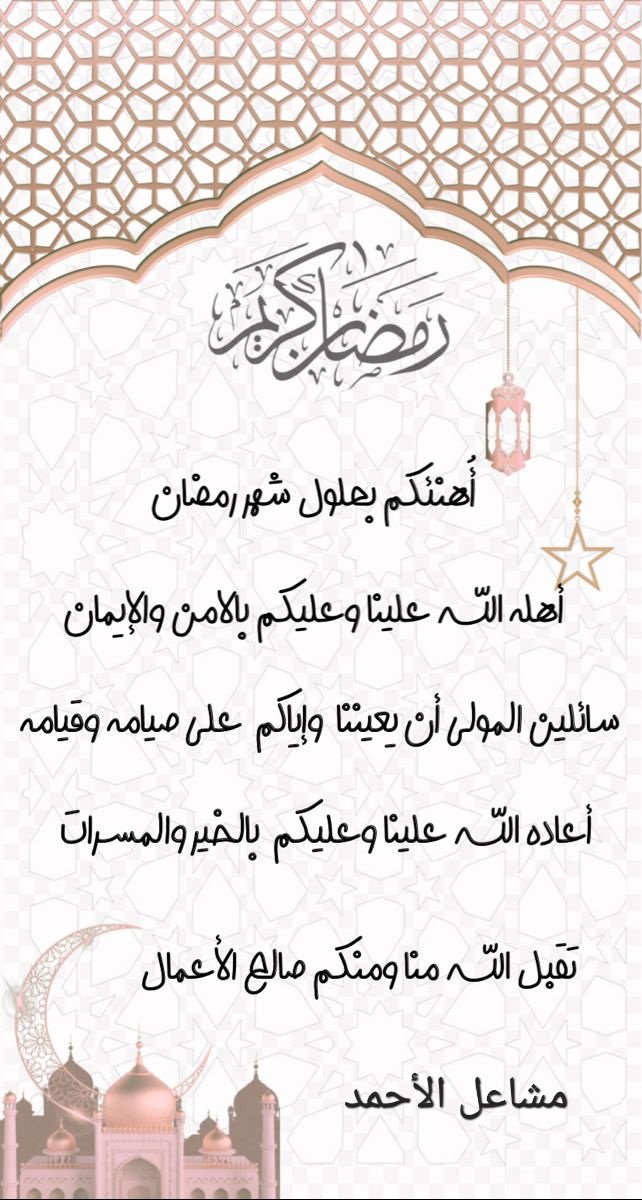 رمضان كريم
أُهنئكم بحلول شهر رمضان
أهله اللّه علينا وعليكم بالامن والإيمان
سائلين المولى أن يعيننا وإياكم على صيامه وقيامه
أعاده اللّه علينا وعليكم بالخير والمسرات
تقبل اللّه منا ومنكم صالح الأعمال
مشاعل الأحمد